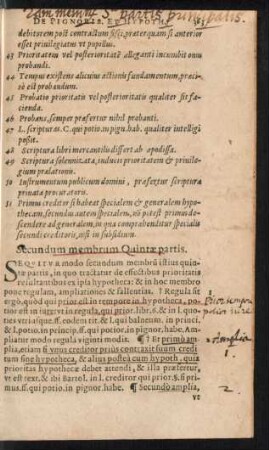 DE PIGNORIB. ET HYPOTH.
debitorem post contractum sed, præterquam si anterior
esset priuilegiatus vt pupillus.
43 Prioritatem vel posterioritatẽ alleganti incumbit onus
probandi.
44 Tempus existens alicuius actionis fundamentum, præci-
sè est probandum.
45 Probatio prioritatis vel posterioritatis qualiter sit fa-
cienda.
46 Probans, semper præfertur nihil probanti.
47 L. scripturas. C. qui potio. in pign. hab. qualiter intelligi
possit.
48 Scriptura libri mercantilis differt ab apodissa.
49 Scriptura solennizata, inducit prioritatem & priuile-
gium prælationis.
50 Instrumentum publicum domini, præfertur scriptura
priuata procuratoris.
51 Primus creditor si habeat specialem & generalem hypo-
thecam, secundus autem specialem, nõ potest primus de-
scendere ad generalem, in qua comprehenditur speciali-
secundi creditoris, nisi in subsidium.
Secundum membrum Quintæ partis.
SEQVITVR modo secundum membrũ istius quin-
tæ partis, in quo tractatur de effectibus prioritatis
resultantibus ex ipsa hypotheca: & in hoc membro
pono regulam, ampliationes & fallentias. ¶ 1 Regula sit
ergò, quòd qui prior est in tempore in hypotheca, po-
tior est in iure, vt in regula, qui prior. lib. 6. & in l.
& l. potior. in princip. ff. qui potior. in pignor. habe. Am-
pliatur modo regula viginti modis. ¶ Et primò am-
plia, etiam si vnus creditor priùs contraxit suum credi
tum sine hypotheca, & alius posteà cum hypoth. quia
prioritas hypothecæ debet attendi, & illa præfertur,
vt est text. & ibi Bartol. in l. creditor qui prior. §. si pri-
mus. ff. qui potior. in pignor. habe. ¶ Secundò amplia,
vt
Amplia
1.
2